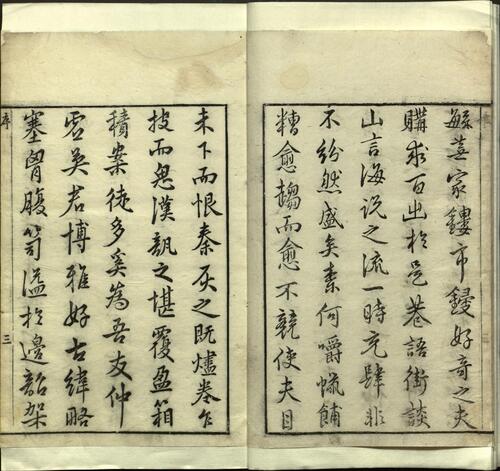 家鏤市鋟好奇之夫
購求百出於是巷語街談
山言海說之流一時充肆非
不紛然盛矣柰何嚼蠟餔
糟愈趨而愈不競使夫目
未下而恨秦灰之既燼卷乍
披而思漢瓿之堪覆盈箱
積案徒多奚為吾友仲
虛吳君博雅好古緯略
塞胷腹笥溢於邊韶架
序
三